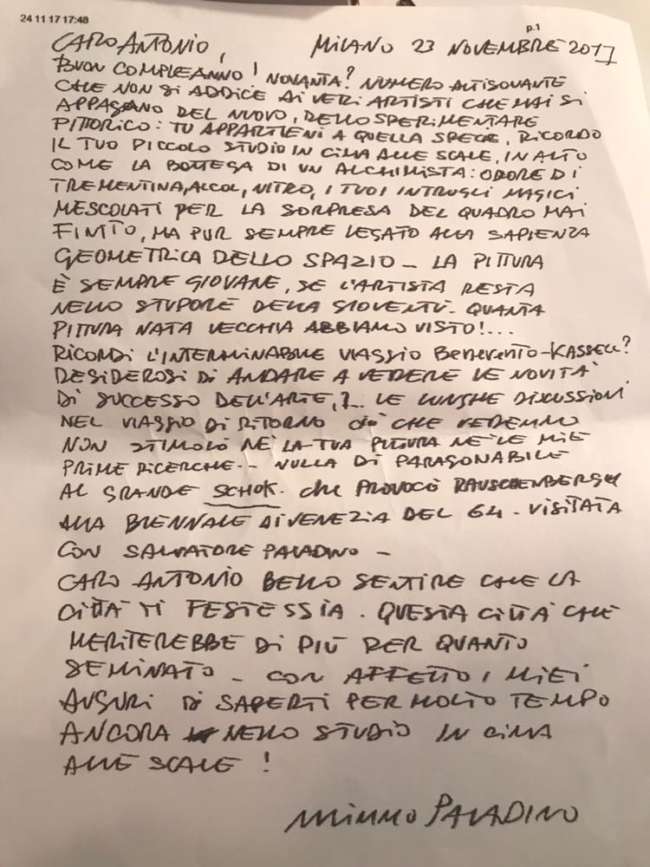 24 11 17 17:48
p.1
CARO ANTONIO, MILANO 23 NOVEMBRE 2017
BUON COMPLEANNO! NOVANTA? NUMERO ALTISONANTE
CHE NON SI ADDICE AI VERI ARTISTI CHE MAI SI
APPAGANO DEL NUOVO, DELLO SPERIMENTARE
PITTORICO: TU APPARTIENI A QUELLA SPECIE, RICORDO
IL TUO PICCOLO STUDIO IN CIMA ALLE SCALE, IN ALTO
COME LA BOTTEGA DI UN ALCHIMISTA: ODORE DI
TREMENTINA, ALCOL, NITRO, I TUOI INTRUGLI MAGICI
MESCOLATI PER LA SORPRESA DEL QUADRO MAI
FINITO, MA PUR SEMPRE LEGATO ALLA SAPIENZA
GEOMETRICA DELLO SPAZIO - LA PITTURA
È SEMPRE GIOVANE, SE L'ARTISTA RESTA
NELLO STUPORE DELLA GIOVENTÙ. QUANTA
PITTURA NATA VECCHIA ABBIAMO VISTO!...
RICORDI L'INTERMINABILE VIAGGIO BENEVENTO-KASSEL?
DESIDEROSI DI ANDARE A VEDERE LE NOVITÀ
DI SUCCESSO DELL'ARTE, ?... LE LUNGHE DISCUSSIONI
NEL VIAGGIO DI RITORNO ciò CHE VEDEMMO
NON STIMOLÒ NÈ LA TUA PITTURA NÈ LE MIE
PRIME RICERCHE... NULLA DI PARAGONABILE
AL GRANDE SCHOK. che PROVOCÒ RAUSCHENBERG
ALLA BIENNALE DI VENEZIA DEL 64. VISITATA
CON SALVATORE PALADINO -
CARO ANTONIO BELLO SENTIRE CHE LA
CITTÀ TI FESTEGGIA. QUESTA CITTÀ CHE
MERITEREBBE DI PIÙ PER QUANTO
SEMINATO - CON AFFETTO I MIEI
AUGURI DI SAPERTI PER MOLTO TEMPO
ANCORA NELLO STUDIO IN CIMA
ALLE SCALE!
MIMMO PALADINO